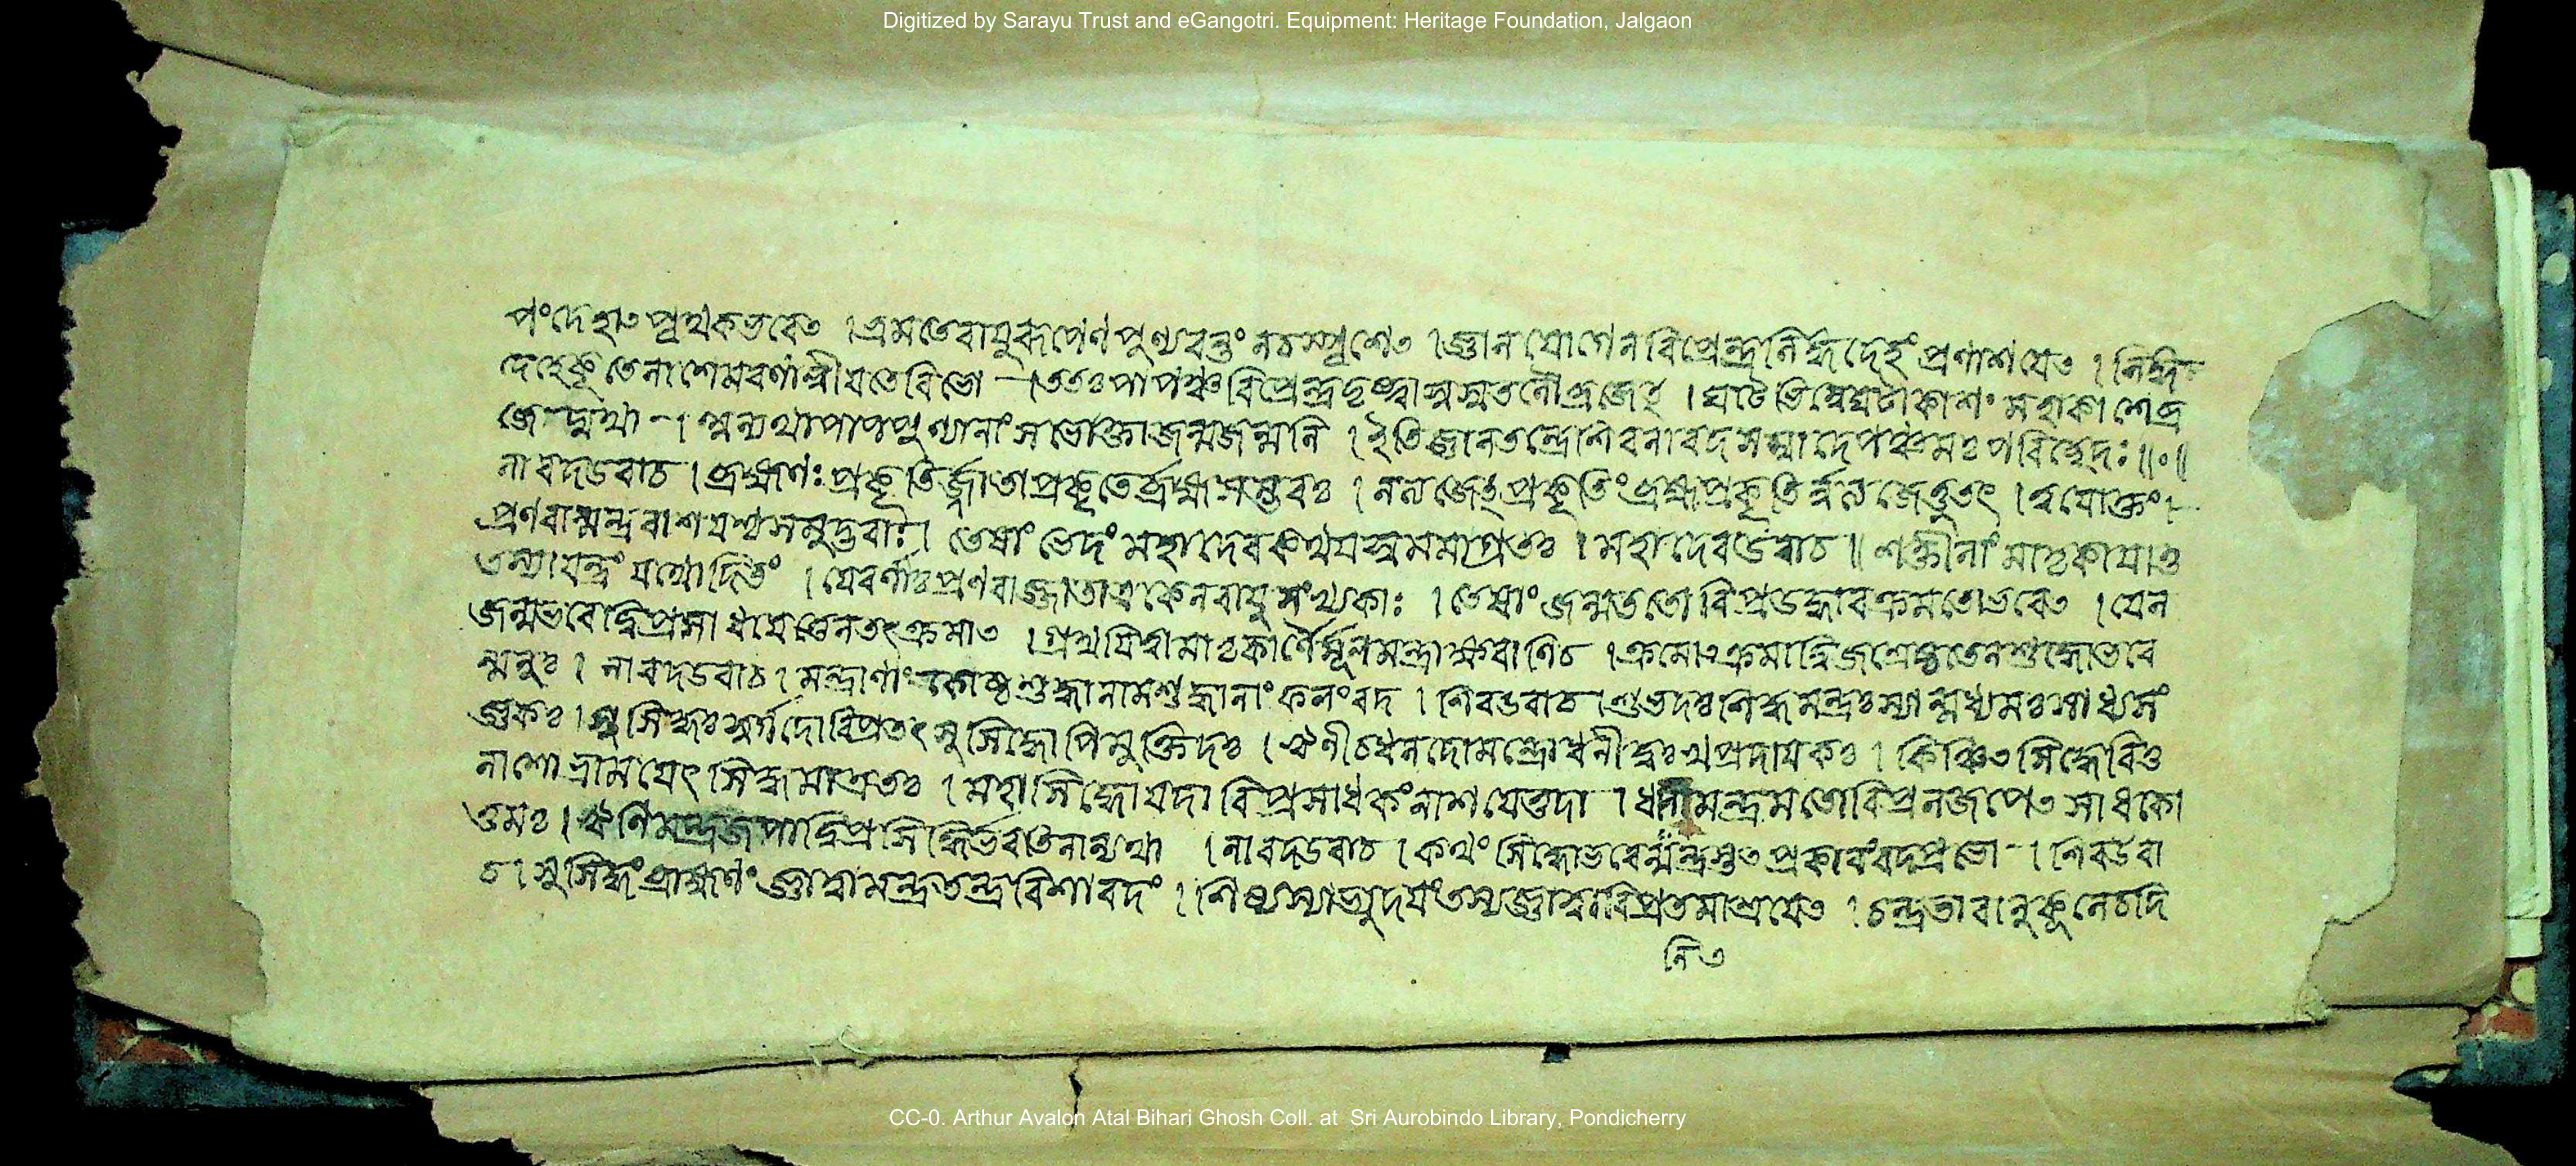 Digitized by Sarayu Trust and eGangotri. Equipment: Heritage Foundation, Jalgaon
পংদেহাৎ পৃথকভবেৎ । ভ্রমতেবায়ুরূপেণ পুণ্যবন্তং নচস্পৃশেৎ । জ্ঞানযোগেনবিপ্রেন্দ্রনির্দ্দহেদেহং প্রণাশযেৎ ।
বিভো । ততঃপাপঞ্চবিপ্রেন্দ্র । ঘটেভিন্নেঘটাকাশং মহাকাশেপ্র
পাপপুণ্যানাং সভোক্তাজন্মজন্মনি । ইতিজ্ঞানতন্ত্রেশিবনারদসম্বাদেপঞ্চমঃ পরিচ্ছেদঃ ॥০॥
নারদউবাচ । ব্রহ্মণঃ প্রকৃতির্জ্জাতাপ্রকৃতের্ব্রহ্মসম্ভবঃ । নত্যজেৎপ্রকৃতিংব্রহ্মপ্রকৃতির্ন্নত্যজেত্তুতৎ ।
প্রণবান্মন্ত্ররাশযশ্চসমুদ্ভবাঃ । তেষাং ভেদং মহাদেবকথযস্বমমাগ্রতঃ । মহাদেবউবাচ ॥ শক্তীনাং মাতৃকাযাস্তু
যথোদিতং । যেবর্ণাঃপ্রণবাজ্জাতা । তেষাং জন্মততোবিপ্রউদ্ধারক্রমতোভবেৎ । যেন
জন্মভবেদ্বিপ্রসাধযেত্তেনতৎক্রমাৎ । মাতৃকার্ণৈর্মূলমন্ত্রাক্ষরাণিচ ।
ন্মনুঃ । নারদউবাচ । মন্ত্রাণাং শুদ্ধানামশুদ্ধানাং ফলংবদ । শিবউবাচ । শুভদঃসিদ্ধমন্ত্রঃস্যান্মধ্যমঃসাধ্যসং
জ্ঞকঃ । সুসিদ্ধঃস্বর্গদোবিপ্রতৎসুসিদ্ধোপিমুক্তিদঃ । ঋণীচধনদোমন্ত্রোধনীদুঃখপ্রদাযকঃ । কিঞ্চিৎসিদ্ধেবিত্ত
নাশোভ্রামযেৎসিদ্ধমাত্রতঃ । মহাসিদ্ধোযদাবিপ্রসাধকংনাশযেত্তদা । ধনীমন্ত্রমতোবিপ্রনজপেৎসাধকো
ত্তমঃ । ঋণিমন্ত্রজপাদ্বিপ্রসিদ্ধির্ভবতিনান্যথা । নারদউবাচ । কথংসিদ্ধোভবেন্মন্ত্রস্তৎপ্রকারংবদপ্রভো । শিবউবা
চ । সুসিদ্ধংব্রাহ্মণংজ্ঞাত্বামন্ত্রতন্ত্রবিশারদং । শিষ্যস্যাভ্যুদযংতস্যজ্ঞাত্বাবিপ্রতমাশ্রযেৎ । চন্দ্রতারানুকূলেচদি
নিৎ
CC-0. Arthur Avalon Atal Bihari Ghosh Coll. at Sri Aurobindo Library, Pondicherry